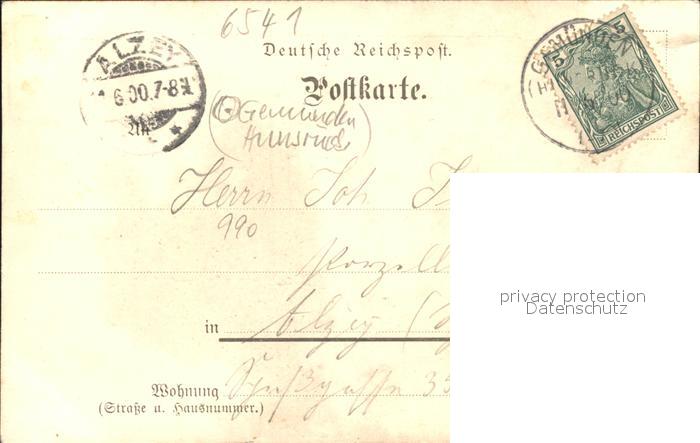 6541
ALZEY
6.00.7-8N
Deutsche Reichspost.
Postkarte.
GEMÜNDEN
5
5
REICHSPOST
Gemünden
Hunsrück
Herrn Joh
990
Porzell
in Alzey
Wohnung
(Straße u. Hausnummer.)
privacy protection
Datenschutz